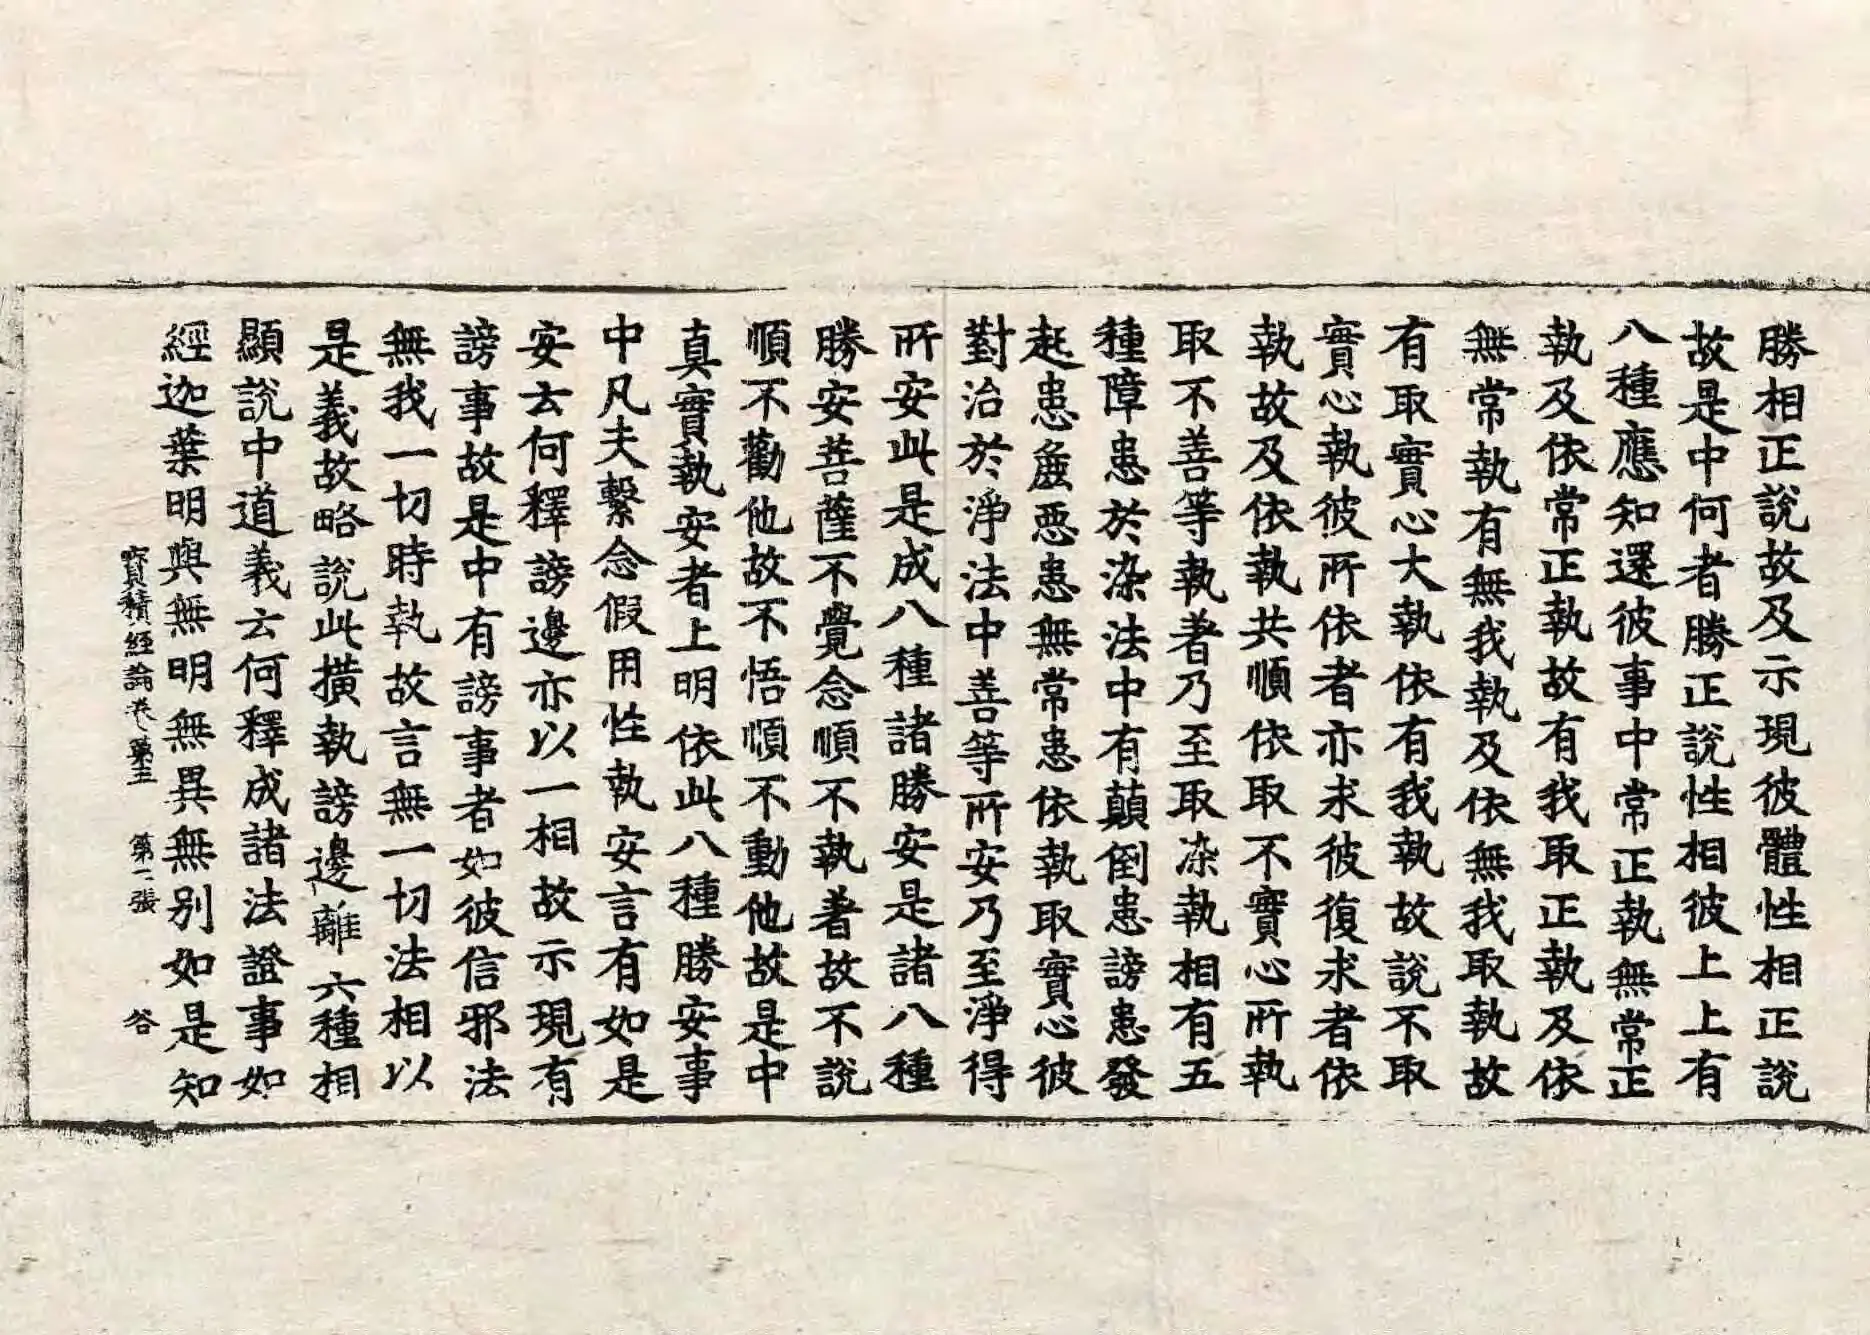 勝相正說故及示現彼體性相正說
故是中何者勝正說性相彼上上有
八種應知還彼事中常正執無常正
執及依常正執故有我取正執及依
無常執有無我執及依無我取執故
有取實心大執依有我執故說不取
實心執彼所依者亦求彼復求者依
執故及依執共順依取不實心所執
取不善等執著乃至取染執相有五
種障患於染法中有顛倒患謗患發
起患麁惡患無常患依執取實心彼
對治於淨法中善等所安乃至淨得
所安此是成八種諸勝安是諸八種
勝安菩薩不覺念順不執著故不說
順不勸他故不悟順不動他故是中
真實執安者上明依此八種勝安事
中凡夫繫念假用性執安言有如是
安去何釋謗邊亦以一相故示現有
謗事故是中有謗事者如彼信邪法
無我一切時執故言無一切法相以
是義故略說此橫執謗邊離六種相
顯說中道義云何釋成諸法證事如
經迦葉明與無明無異無別如是知
寶積經論卷第三 第一張 谷